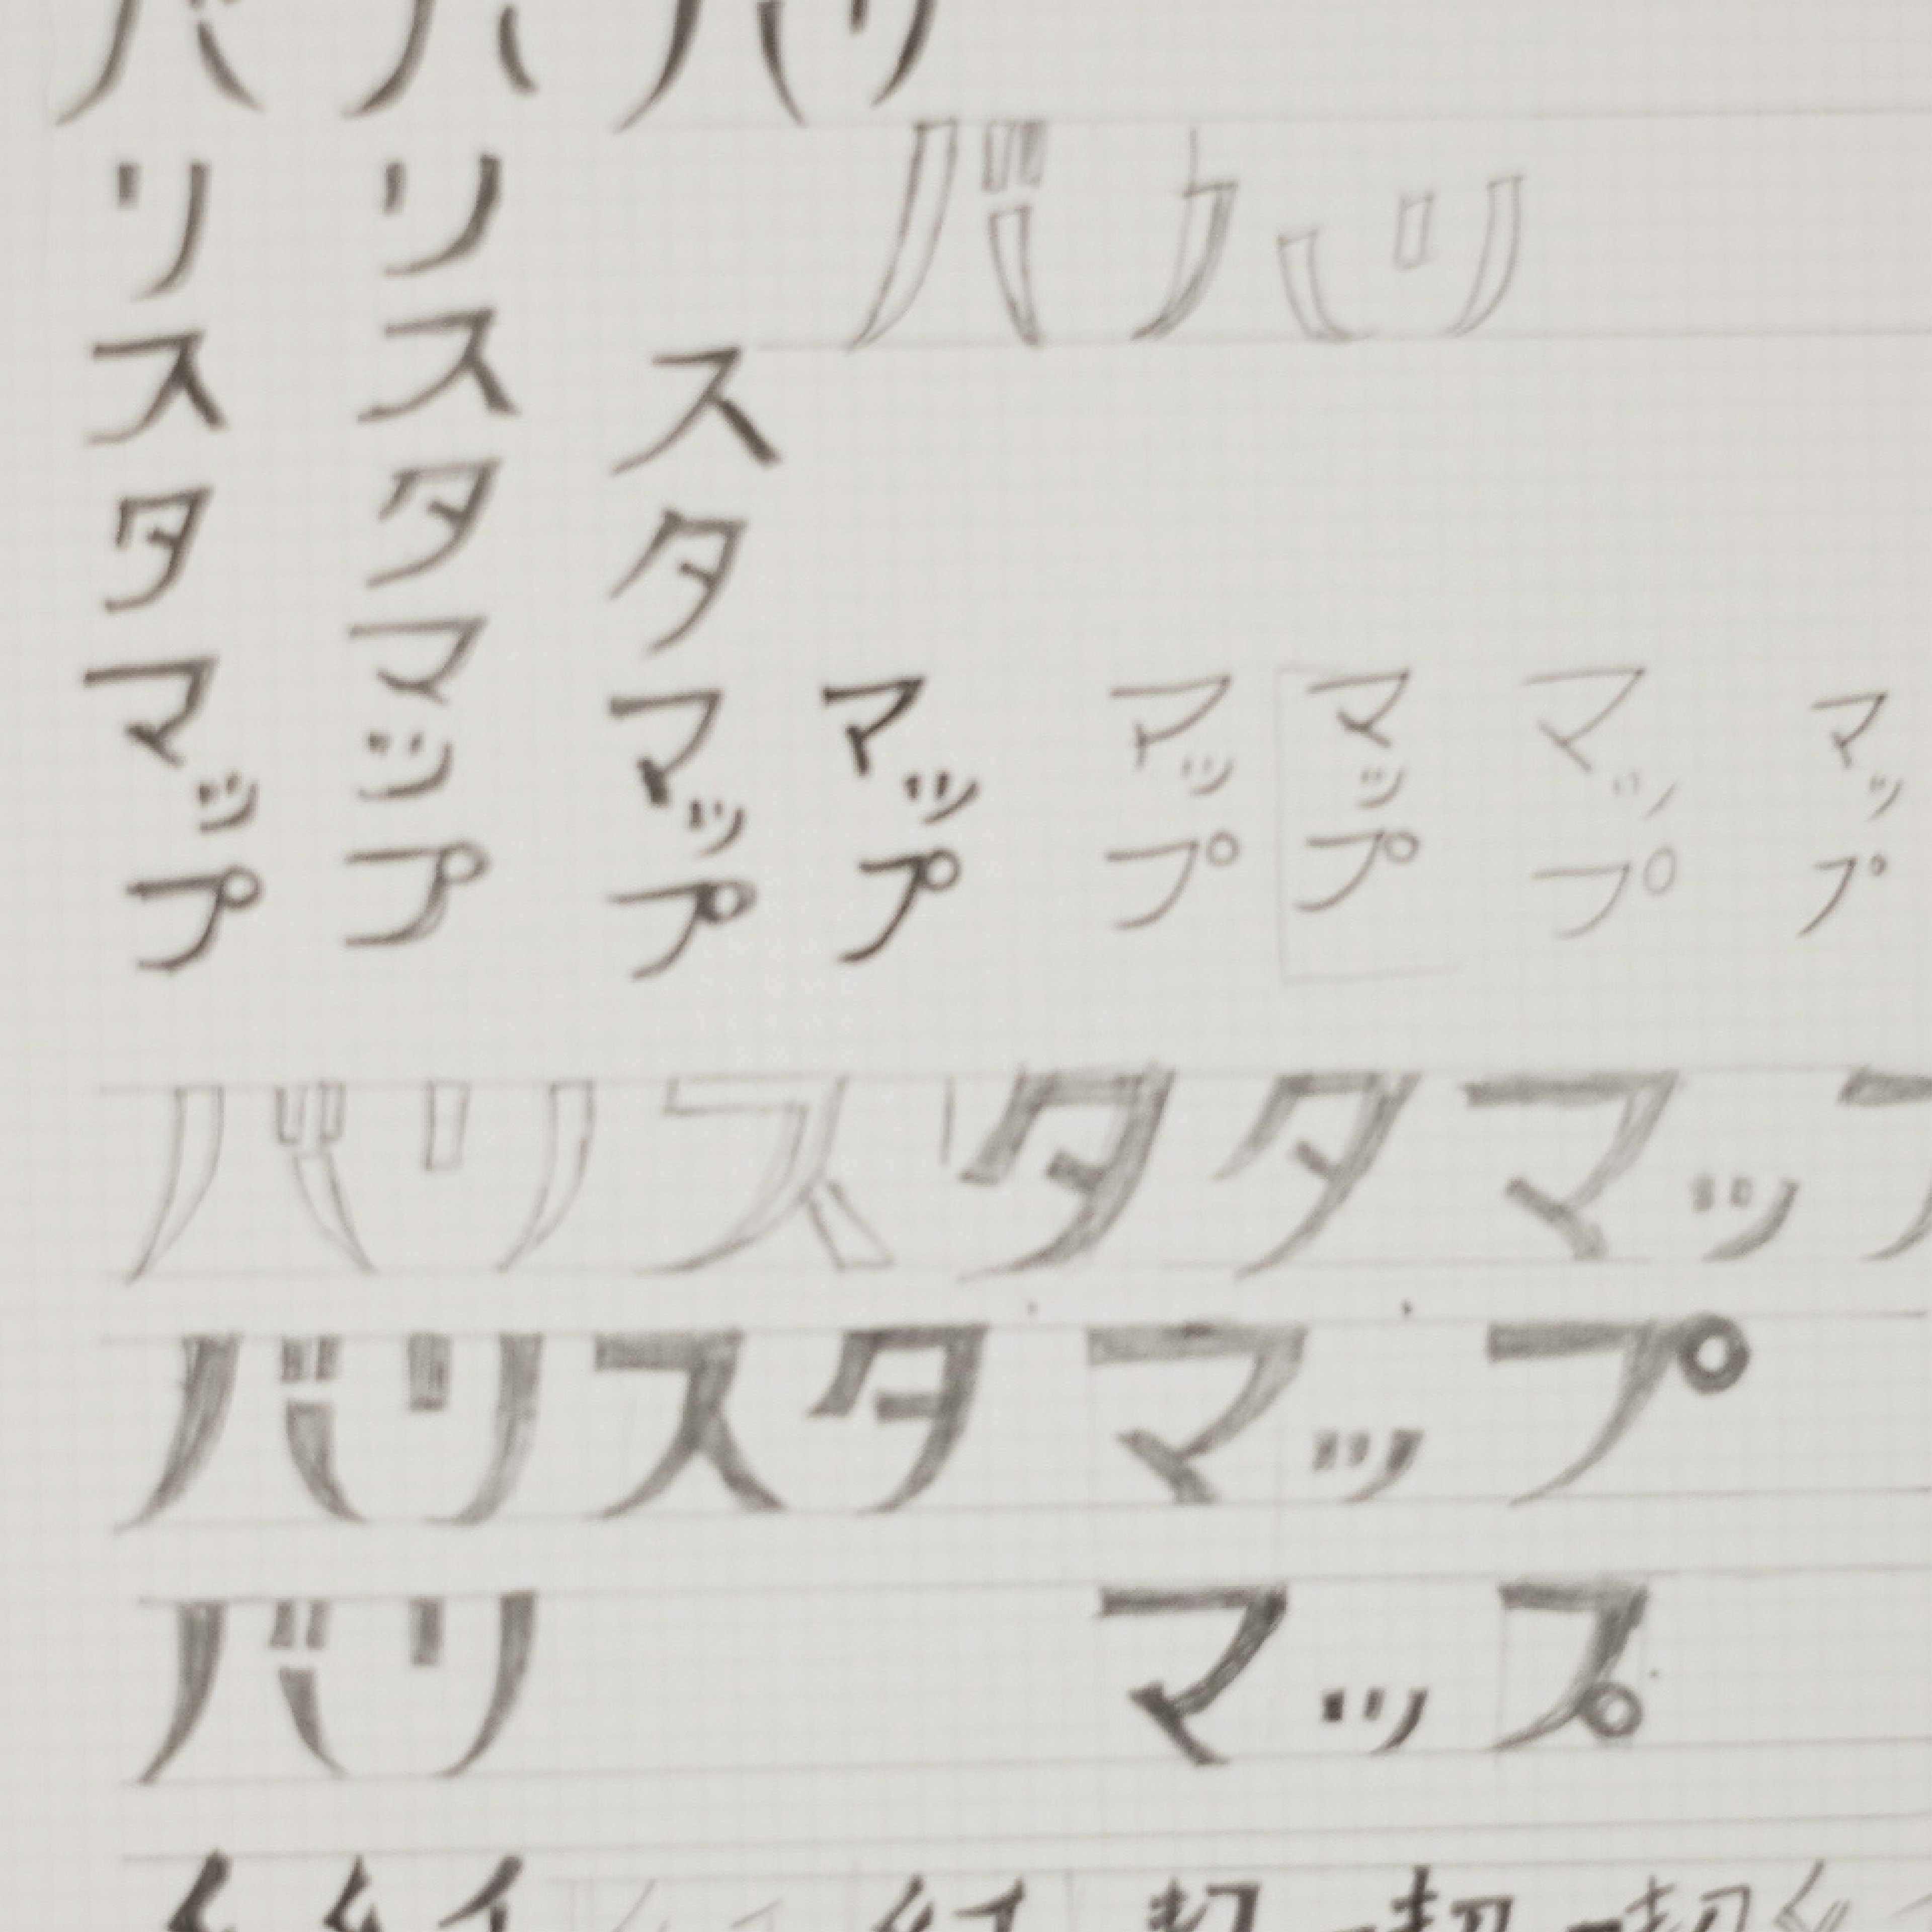 バ ハ ハリ
バ ハ リ
リスタマップ
リスタマップ
スタマップ
マップ
マップ
マップ
マップ
マップ
バリスタタマッフ
バリスタマップ
バリ マップ